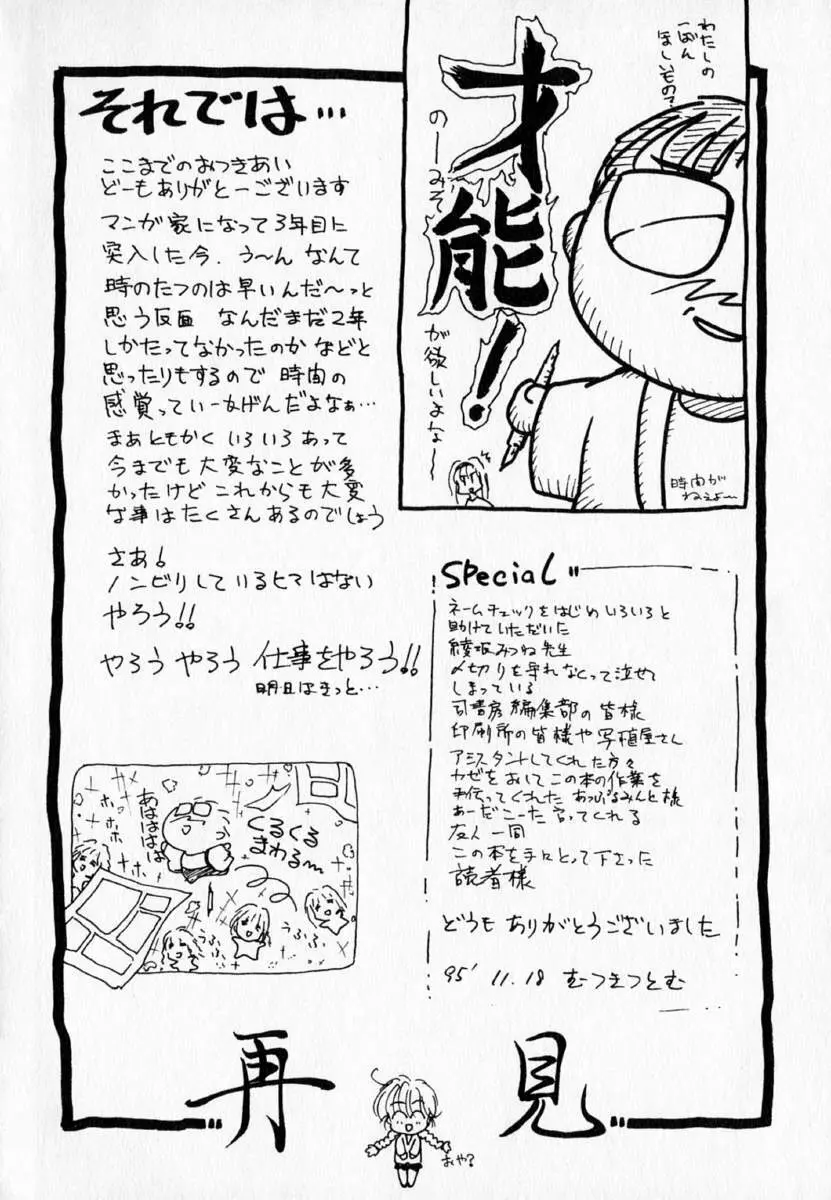 わたしの
一ばん
ほしいもの?
才能!
のーみそ
が欲しいよな~
時間が
ねぇよ~
それでは…
ここまでのおつきあい
どーもありがとーございます
マンガ家になって3年目に
突入した今、う~ん なんて
時のたつのは早いんだ~っと
思う反面 なんだまだ2年
しかたってなかったのか などと
思ったりもするので 時間の
感覚っていー
んだよなぁ…
まぁともかく いろいろあって
今までも大変なことが多
かったけど これからも大変
な事はたくさんあるのでしょう
さあ!
ノンビリしているヒマはない
やろう!!
やろう やろう 仕事をやろう!!
明日はきっと…
Special
ネームチェックをはじめ いろいろと
助けていただいた
綾坂みつね先生
〆切りを守れなくって泣せて
しまっている
司書房編集部の皆様
印刷所の皆様や写植屋さん
アシスタントしてくれた方々
カゼをおして この本の作業を
手伝ってくれた あっぷるみんと様
あーだこーだ言ってくれる
友人一同
この本を手にとって下さった
読者様
どうも ありがとうございました
95' 11.18 むつきつとむ
あはははは
ホホホ
ホホホ
くるくる
まわる~
うふふ
再見
おや?